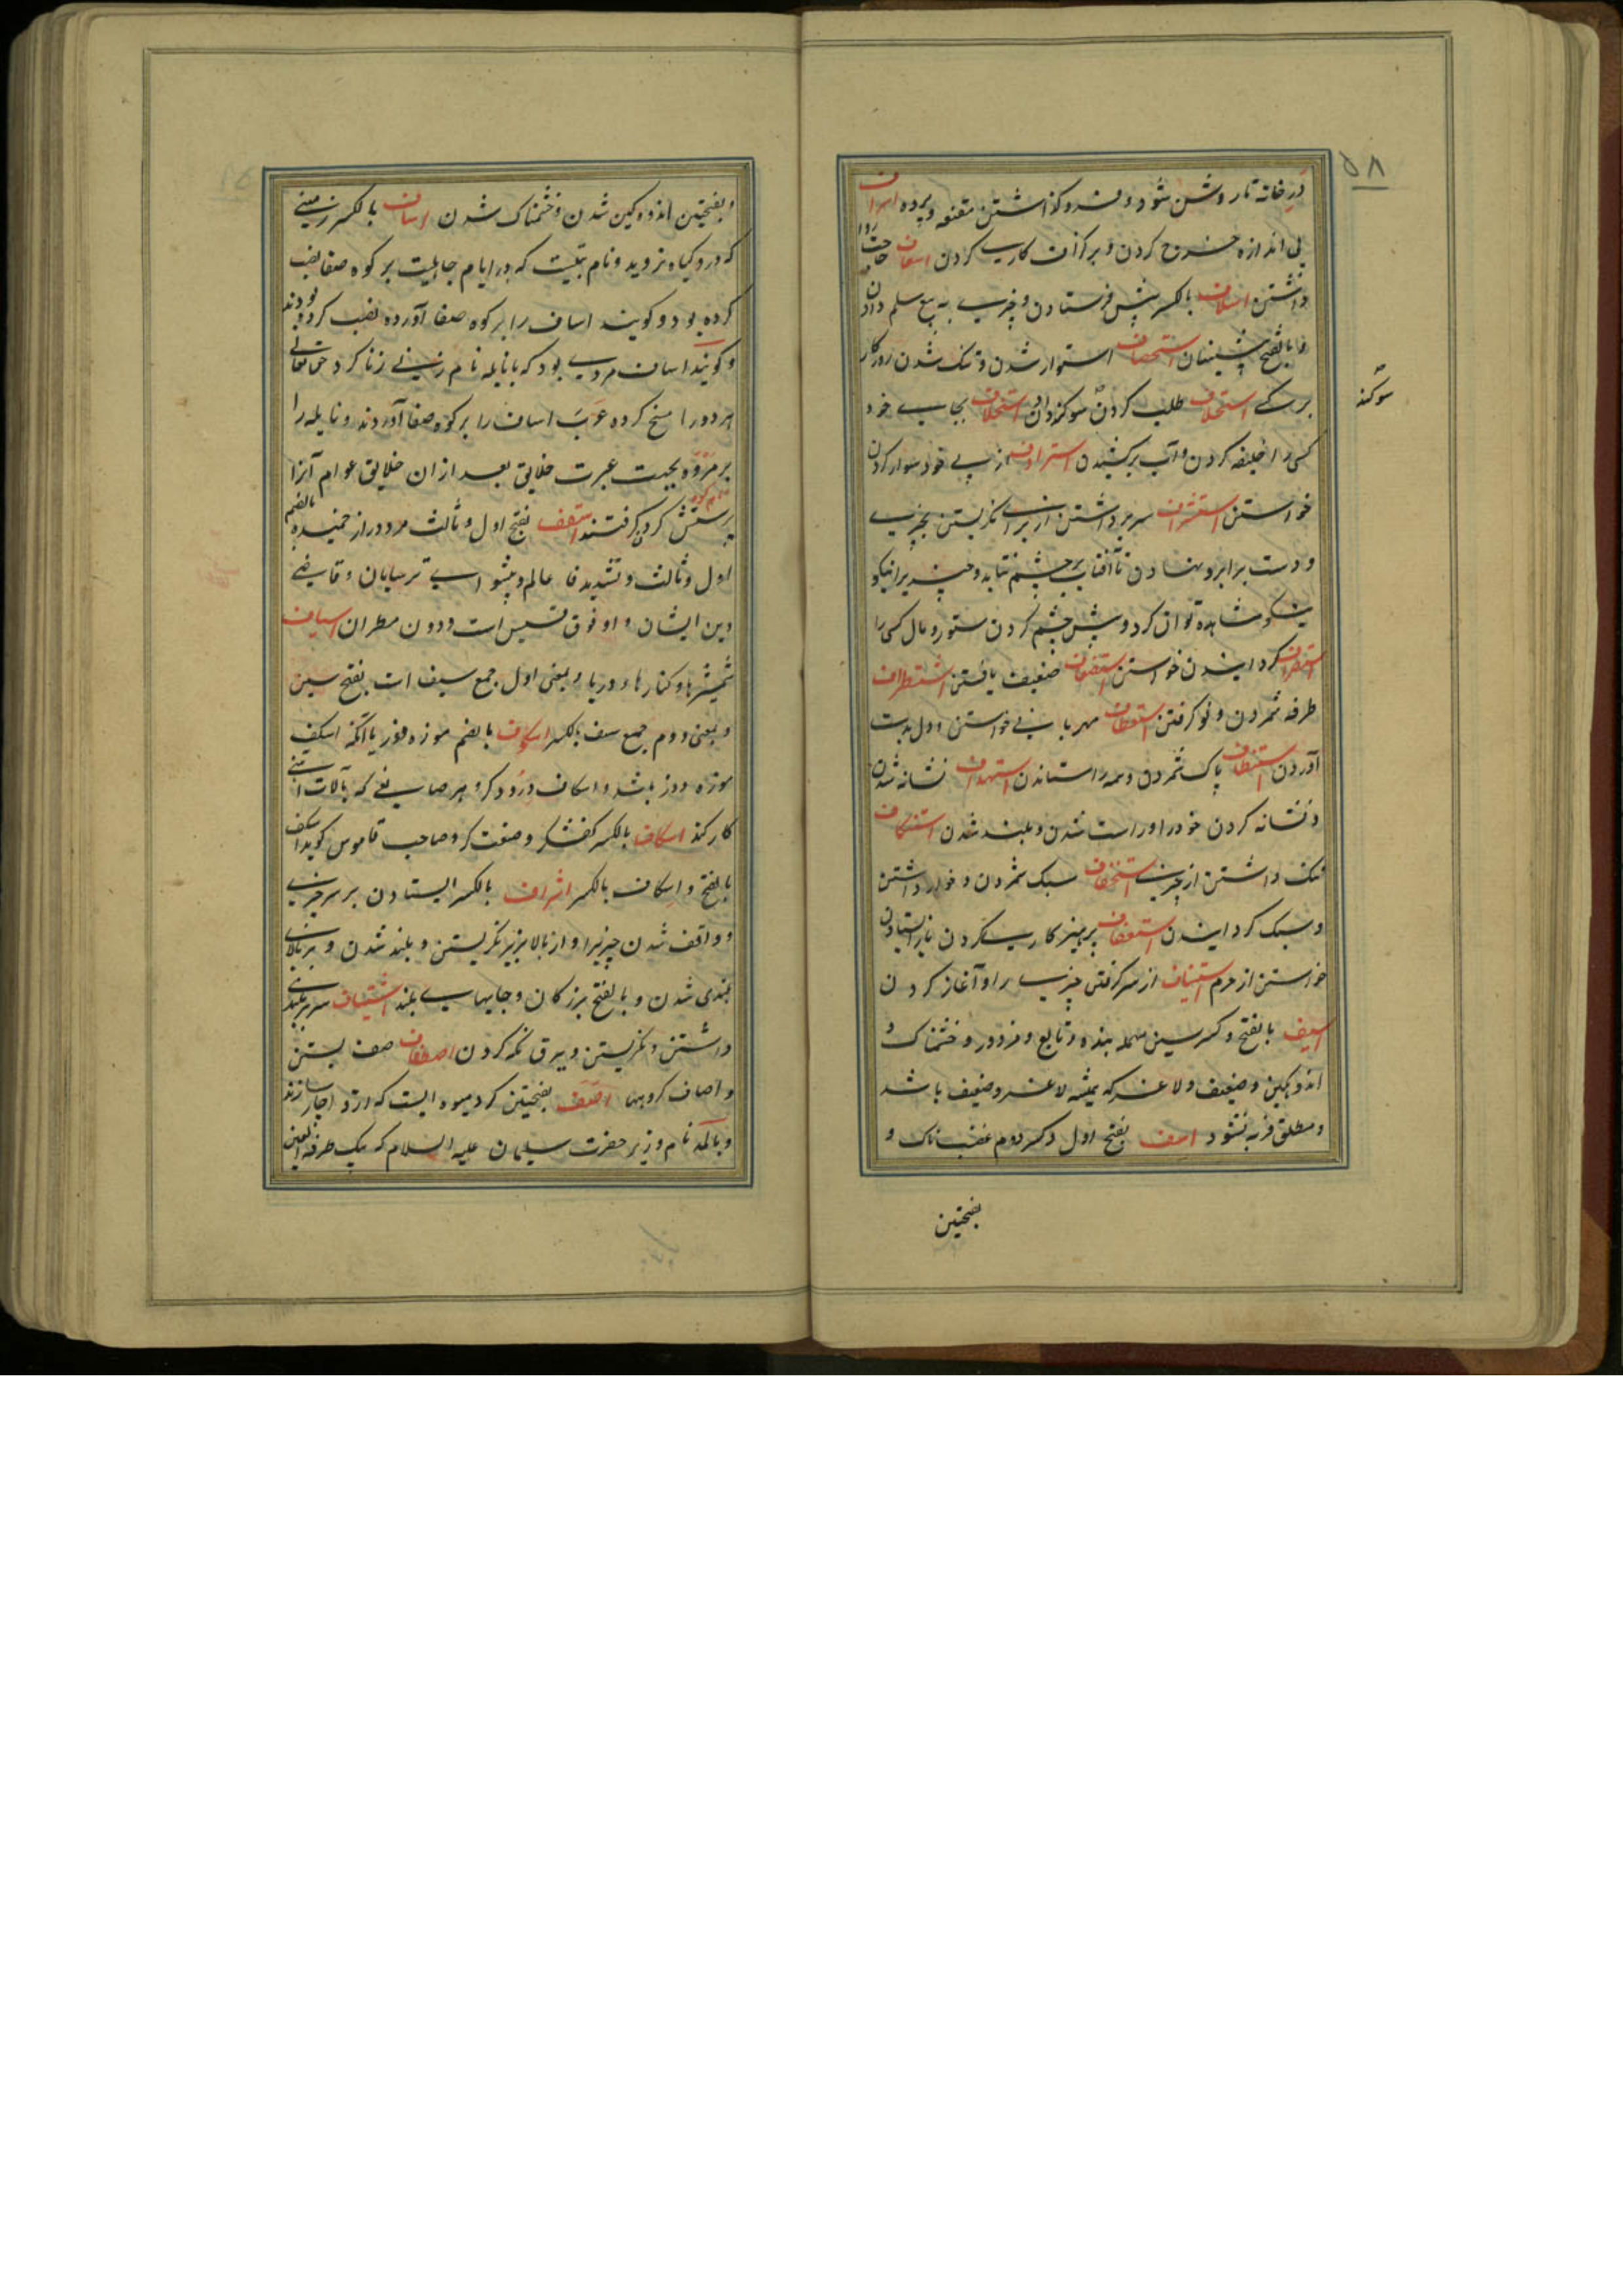 ۵۸
در خانه تا روشن شود و فرو گذاشتن مقنعه و پرده اسراف
بی اندازه خرج کردن و بر گزاف کاری کردن اسعاف حاجت روا
داشتن اسلاف بالکسر پیش فرستادن و چیزی به بیع سلم دادن
و بالفتح پیشینیان استحصاف استوار شدن و تنگ شدن روزگار
بر کسی استحلاف طلب کردن سوگند دادن استخلاف بجای خود
سوگند
کسی را خلیفه کردن و آب برکشیدن استرداف از پی خود سوار کردن
خواستن استشراف سر برداشتن از برای نگریستن بچیزی
و دست بر ابرو نهادن تا آفتاب بر چشم نتابد و چیزیرا نیکو
مشاهده توان کرد و پیش چشم کردن ستور و مال کسی را
گردانیدن خواستن استضعاف ضعیف یافتن استطراف
طرفه شمردن و نو گرفتن استعطاف مهربانی خواستن و دل بدست
آوردن استنظاف پاک شمردن و همه را ستاندن استهداف نشانه شدن
و نشانه کردن خود را و راست شدن و بلند شدن استنکاف
ننگ داشتن از چیزی استخفاف سبک شمردن و خوار داشتن
و سبک گردانیدن استعفاف پرهیزکاری کردن باز ایستادن
خواستن از حرم استیناف از سر گرفتن چیزی را و آغاز کردن
اسیف بالفتح و کسر سین مهمله بنده و تابع و مزدور و خشمناک و
اندوهگین و ضعیف و لاغر که همیشه لاغر و ضعیف باشد
و مطلق فربه نشود اسف بفتح اول و کسر دوم غضبناک و
بفتحتین
و بفتحتین اندوهگین شدن و خشمناک شدن اساف بالکسر زمینی
که درو گیاه نروید و نام بتیست که در ایام جاهلیت بر کوه صفا نصب
کرده بود و گویند اساف را بر کوه صفا آورده نصب کرده بودند
و گویند اساف مردی بود که با نایله نام زنی زنا کرد حق تعالی
هر دو را مسخ کرده عرب اساف را بر کوه صفا آوردند و نایله را
بر مروه بجهت عبرت خلایق بعد از ان خلایق عوام آنرا
پرستش کردن گرفتند اسقف بفتح اول و ثالث مرد دراز خمیده بالضم
اول و ثالث و تشدید فا عالم و پیشوای ترسایان و قاضی
دین ایشان و او فوق قسیس است و دون مطران اسیاف
شمشیرها و کنارهاء دریا و بمعنی اول جمع سیف است بفتح سین
و بمعنی دوم جمع سیف بالکسر اسکوف بالضم موزه دوز یا آنکه اسکف
موزه دوز باشد و اسکاف درودگر و هر صانعی که بآلات آهنی
کار کند اسکاف بالکسر کفشگر و صنعت گر و صاحب قاموس گوید اسکف
بالفتح و اسکاف بالکسر اشراف بالکسر ایستادن بر سر چیزی
و واقف شدن چیزیرا و از بالا بزیر نگریستن و بلند شدن و بر بالای
بلندی شدن و بالفتح بزرگان و جایهای بلند اشتیاف سر بر بلندی
داشتن و نگریستن و ببرق نگه کردن اصطفاف صف بستن
و اصاف گروهها اصف بفتحتین گرد میوه ایست که ازو اچار سازند
و بالمد نام وزیر حضرت سلیمان علیه السلام که بیک طرفة العین